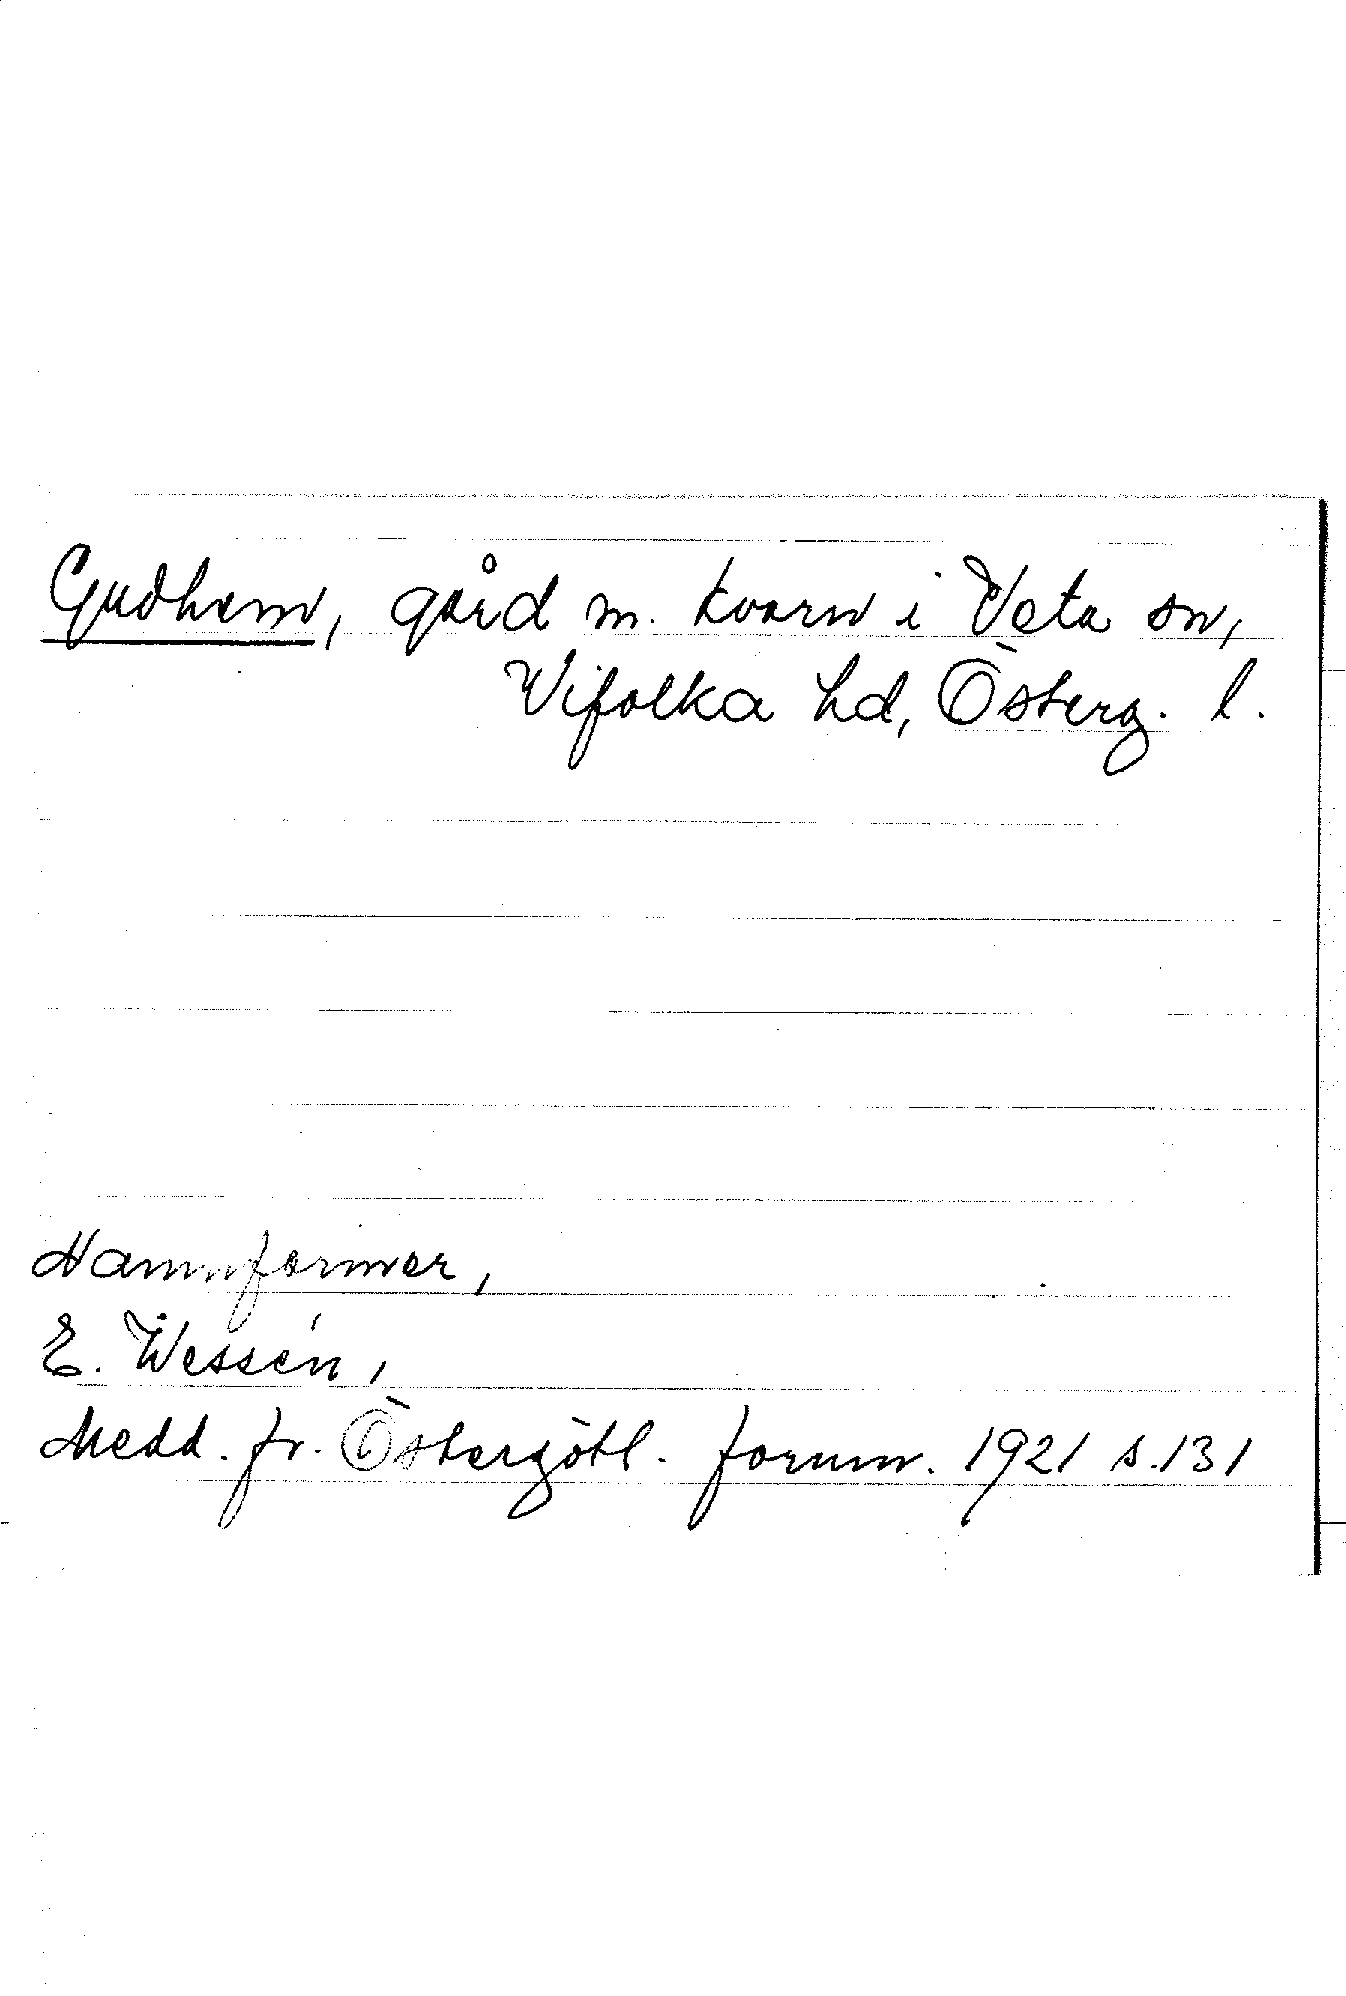 Gudhem, gård m. kvarn i Veta sn,
Vifolka hd, Österg. l.
Namnformer,
E. Wessén,
Medd. fr. Östergötl. fornm. 1921 s. 131